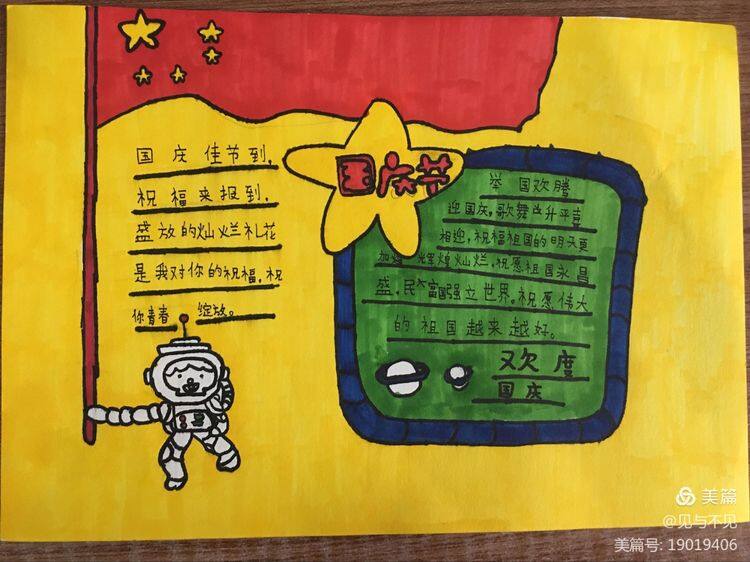 国庆佳节到,
祝福来报到,
盛放的灿烂礼花
是我对你的祝福,祝
你青春 绽放。
国庆节
举国欢腾
迎国庆,歌舞升平喜
相迎,祝福祖国的明天更
加辉煌灿烂,祝愿祖国永昌
盛,民富国强立世界。祝愿伟大
的祖国越来越好。
欢度
国庆
美篇
@见与不见
美篇号: 19019406